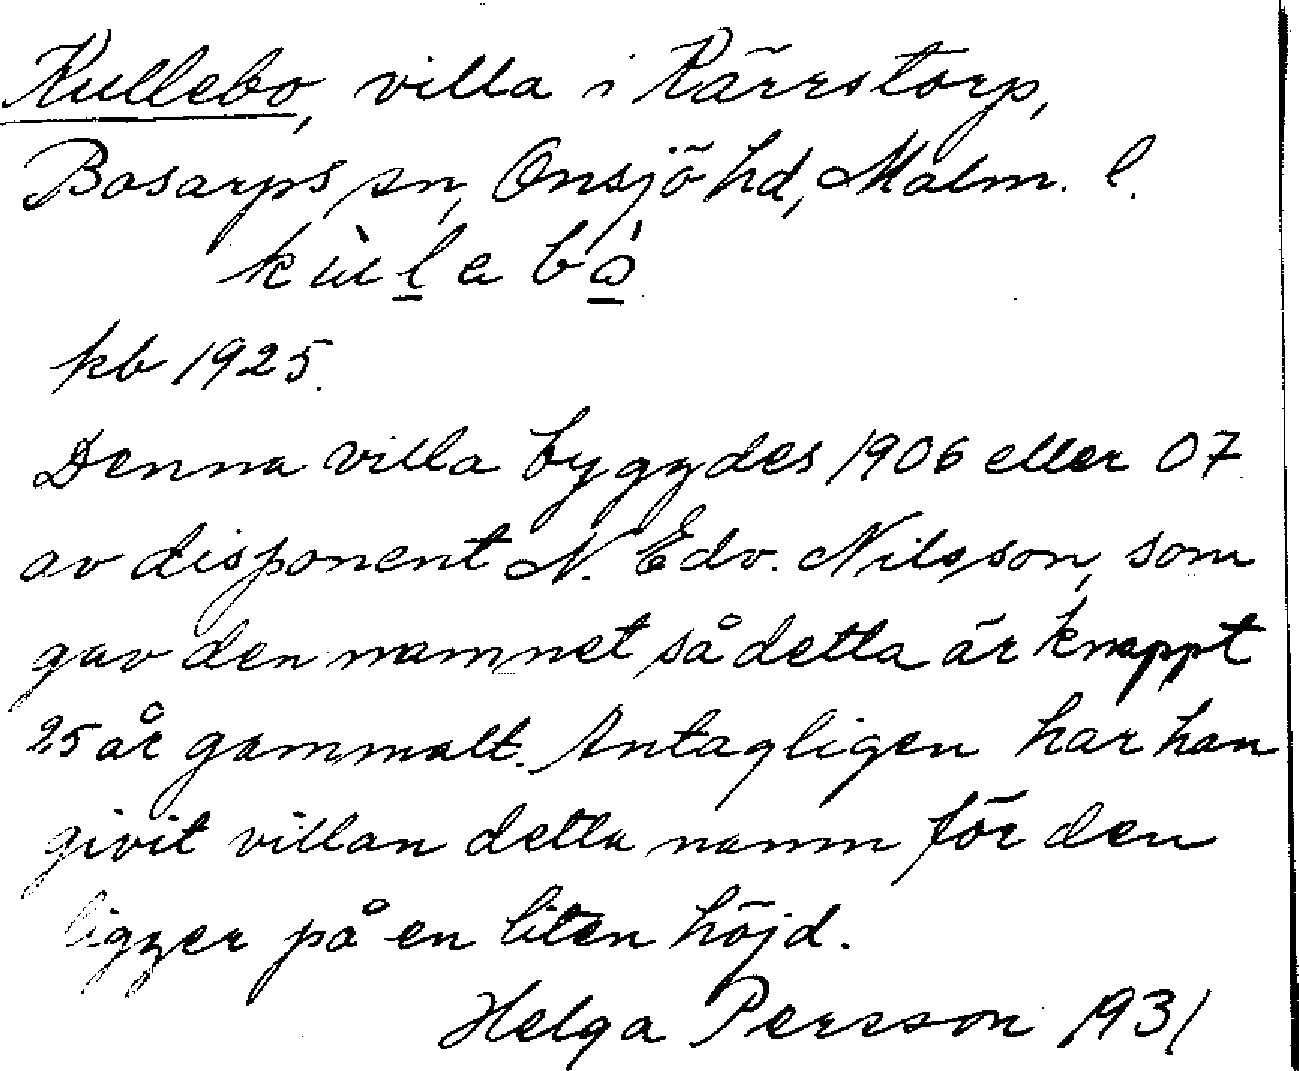 Kullebo, villa i Kärrstorp,
Bosarps sn, Onsjö hd, Malm. l.
kùlebó
kb 1925.
Denna villa byggdes 1906 eller 07
av disponent N. Edv. Nilsson, som
gav den namnet så detta är knappt
25 år gammalt. Antagligen har han
givit villan detta namn för den
ligger på en liten höjd.
Helga Persson 1931